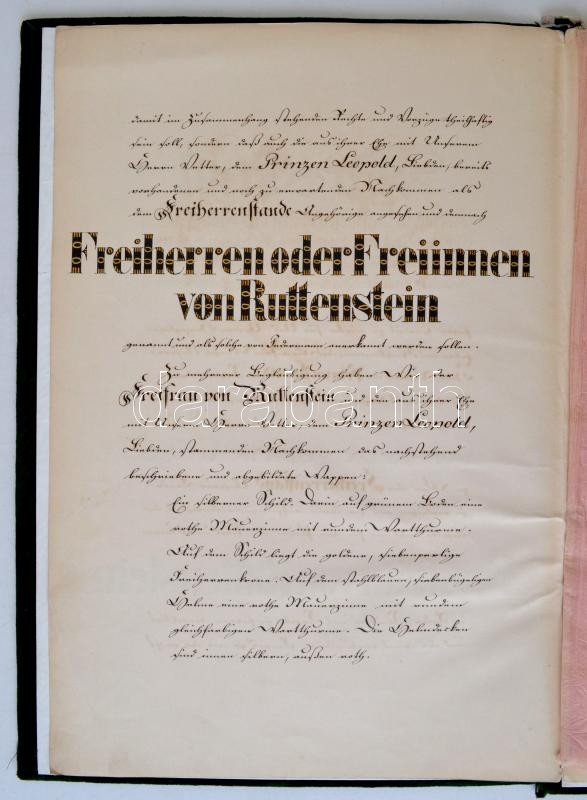 damit im Zusammenhang stehenden Rechte und Vorzüge theilhaftig
sein soll, sondern daß auch die aus ihrer Ehe mit Unserem
Herrn Vetter, dem Prinzen Leopold, Liebden, bereits
vorhandenen und noch zu erwartenden Nachkommen als
dem Freiherrenstande Angehörige angesehen und demnach
Freiherren oder Freiinnen
von Ruttenstein
genannt und als solche von Jedermann anerkannt werden sollen.
Zu mehrerer Beglaubigung haben Wir der
Freifrau von Ruttenstein und den aus ihrer Ehe
mit Unserem Herrn Vetter, dem Prinzen Leopold,
Liebden, stammenden Nachkommen das nachstehend
beschriebene und abgebildete Wappen:
Ein silberner Schild. Darin auf grünem Boden eine
rothe Mauerzinne mit rundem Wartthurme.
Auf dem Schild liegt die goldene, siebenperlige
Freiherrenkrone. Auf dem stahlblauen, siebenbügeligen
Helme eine rothe Mauerzinne mit rundem
gleichfarbigen Wartthurme. Die Helmdecken
sind innen silbern, außen roth.
darabanth